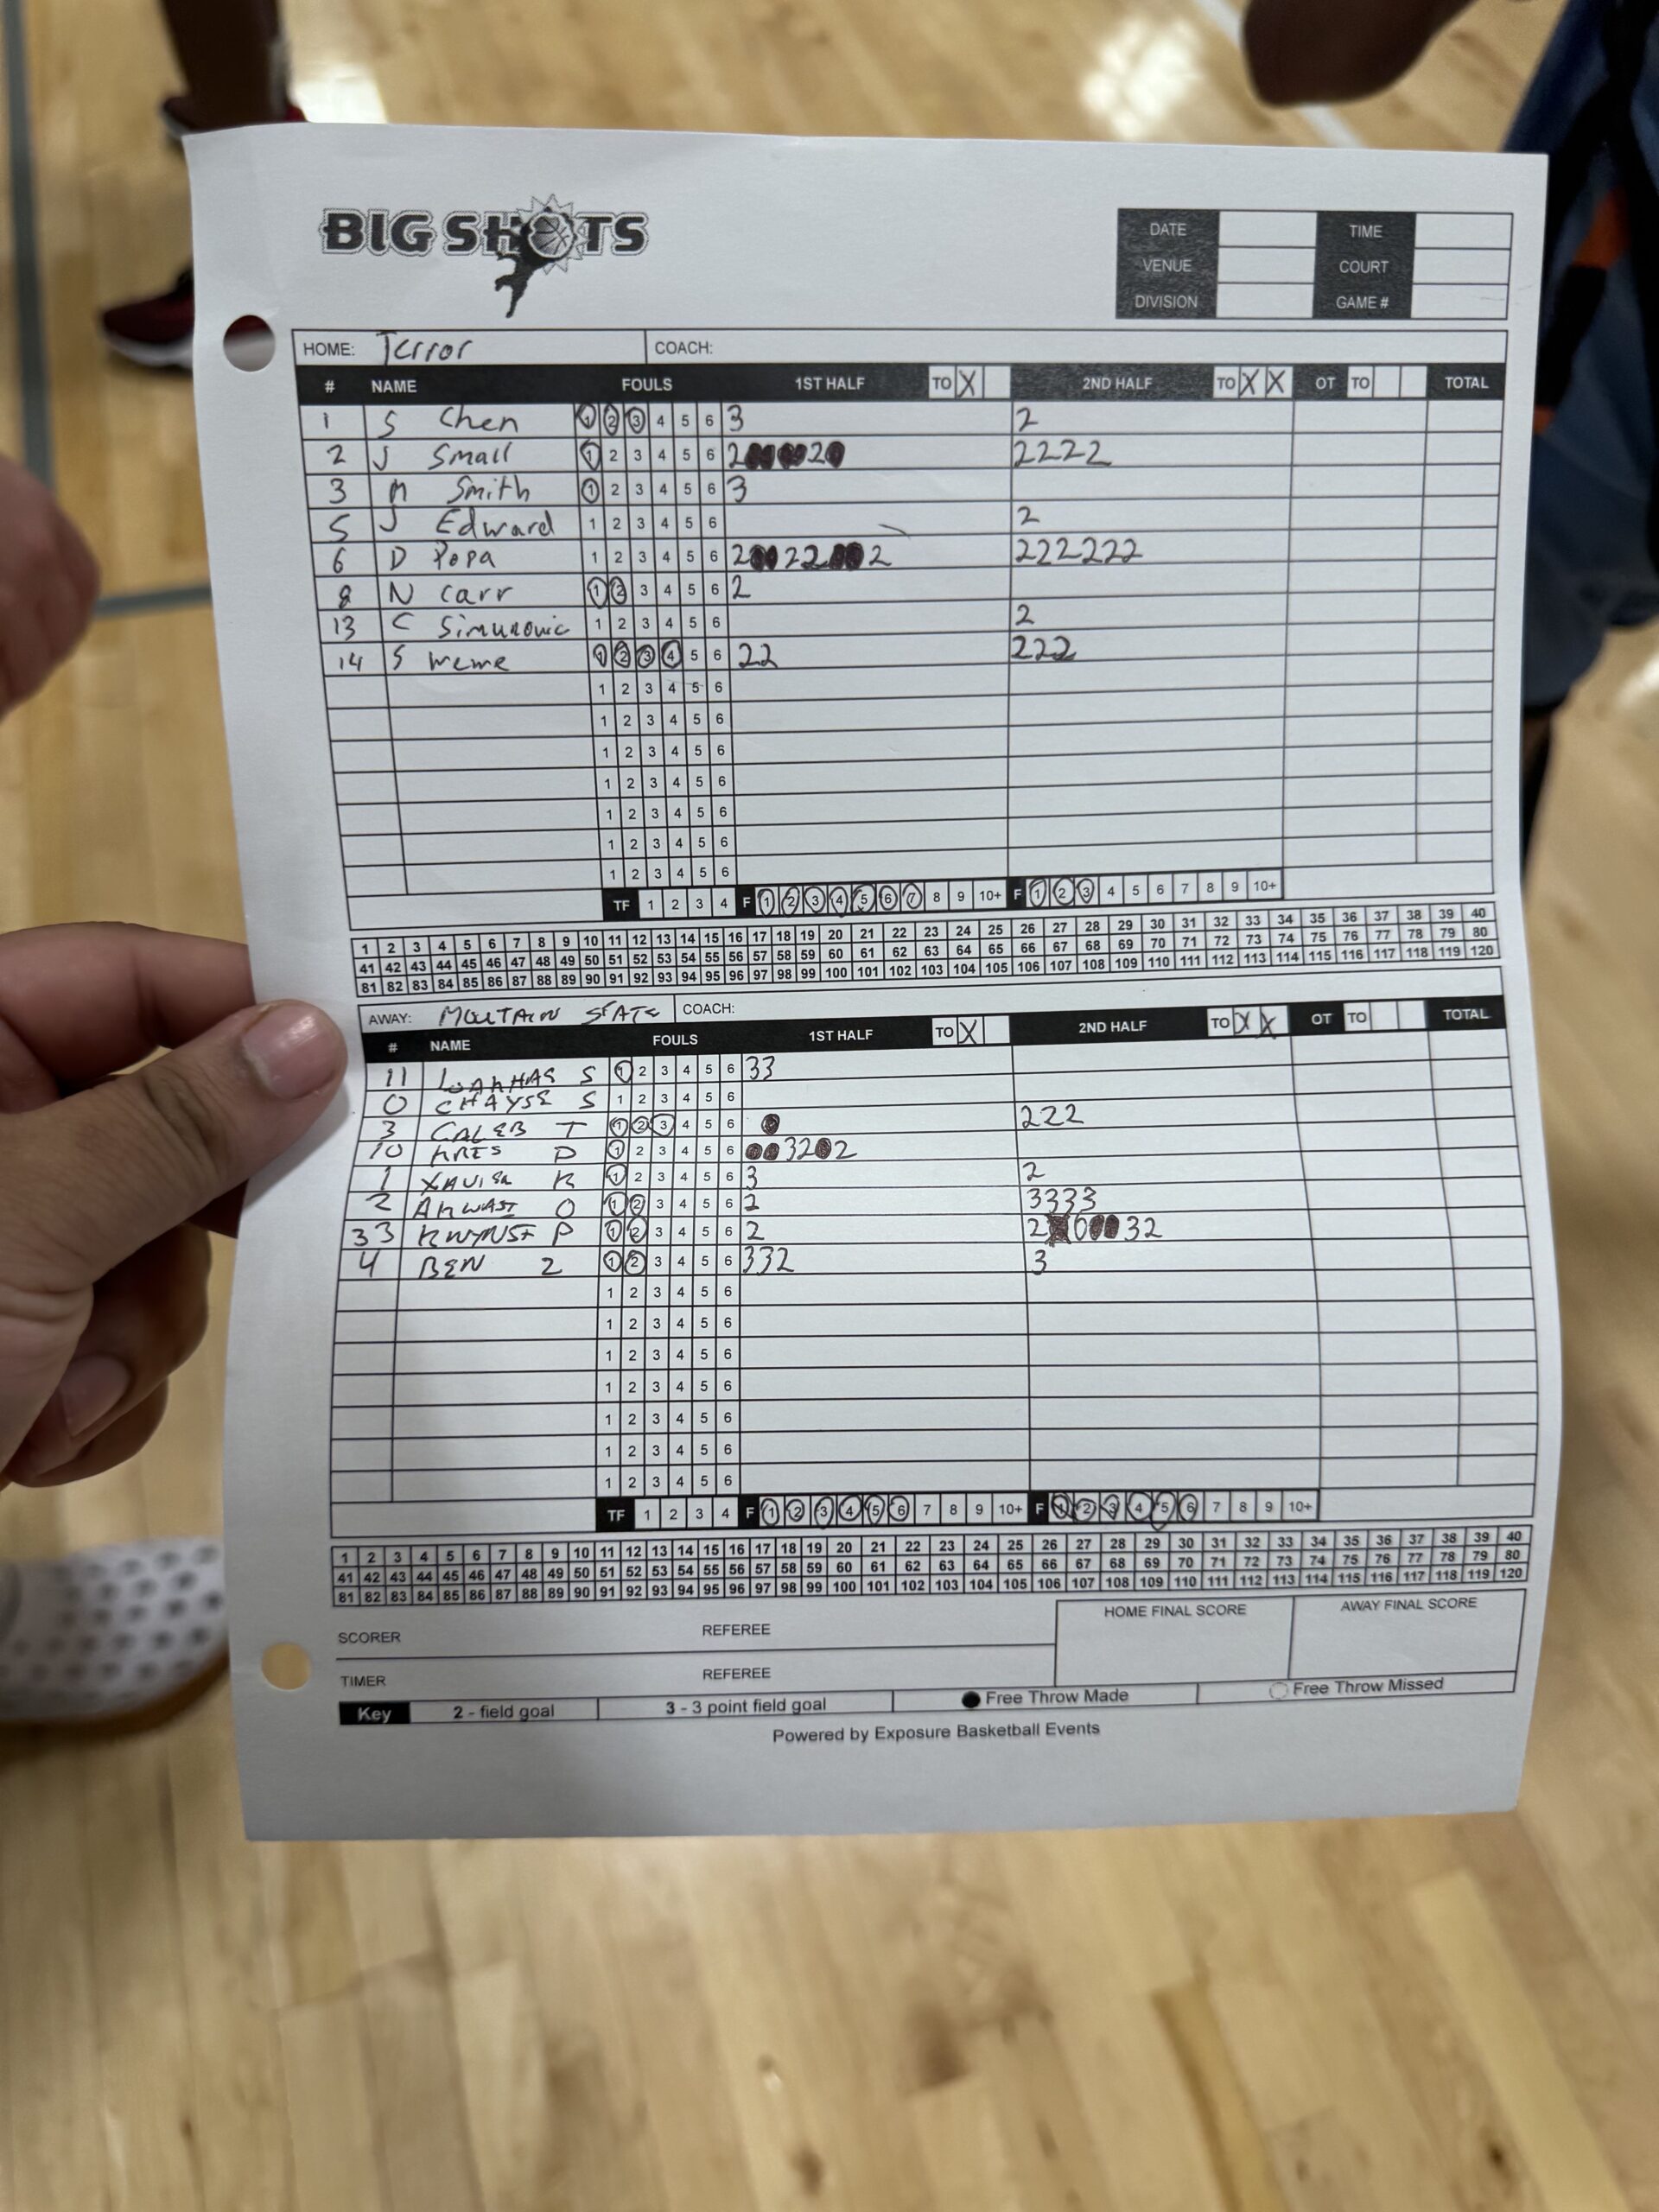 BIG SHOTS
DATE TIME
VENUE COURT
DIVISION GAME #
HOME: Terror COACH:
# NAME FOULS 1ST HALF TO X 2ND HALF TO X X OT TO TOTAL
1 S Chen 1 2 3 4 5 6 3 2
2 J Small 1 2 3 4 5 6 2●●●●2● 2222
3 M Smith 1 2 3 4 5 6 3
5 J Edward 1 2 3 4 5 6 2
6 D Popa 1 2 3 4 5 6 2●●22●●2 222222
8 N Carr 1 2 3 4 5 6 2
13 C Simunovic 1 2 3 4 5 6 2
14 S meme 1 2 3 4 5 6 22 222
1 2 3 4 5 6
1 2 3 4 5 6
1 2 3 4 5 6
1 2 3 4 5 6
1 2 3 4 5 6
1 2 3 4 5 6
1 2 3 4 5 6
TF 1 2 3 4 F 1 2 3 4 5 6 7 8 9 10+ F 1 2 3 4 5 6 7 8 9 10+
1 2 3 4 5 6 7 8 9 10 11 12 13 14 15 16 17 18 19 20 21 22 23 24 25 26 27 28 29 30 31 32 33 34 35 36 37 38 39 40
41 42 43 44 45 46 47 48 49 50 51 52 53 54 55 56 57 58 59 60 61 62 63 64 65 66 67 68 69 70 71 72 73 74 75 76 77 78 79 80
81 82 83 84 85 86 87 88 89 90 91 92 93 94 95 96 97 98 99 100 101 102 103 104 105 106 107 108 109 110 111 112 113 114 115 116 117 118 119 120
AWAY: MOUTAIN STATE COACH:
# NAME FOULS 1ST HALF TO X 2ND HALF TO X X OT TO TOTAL
11 S 1 2 3 4 5 6 33
0 CHAYSE S 1 2 3 4 5 6
3 CALEB T 1 2 3 4 5 6 ● 222
10 ARES D 1 2 3 4 5 6 ●●32●2
1 XAVIER K 1 2 3 4 5 6 3 2
2 AKWASI O 1 2 3 4 5 6 2 3333
33 P 1 2 3 4 5 6 2 2●0●●32
4 BEN Z 1 2 3 4 5 6 332 3
1 2 3 4 5 6
1 2 3 4 5 6
1 2 3 4 5 6
1 2 3 4 5 6
1 2 3 4 5 6
1 2 3 4 5 6
1 2 3 4 5 6
TF 1 2 3 4 F 1 2 3 4 5 6 7 8 9 10+ F 1 2 3 4 5 6 7 8 9 10+
1 2 3 4 5 6 7 8 9 10 11 12 13 14 15 16 17 18 19 20 21 22 23 24 25 26 27 28 29 30 31 32 33 34 35 36 37 38 39 40
41 42 43 44 45 46 47 48 49 50 51 52 53 54 55 56 57 58 59 60 61 62 63 64 65 66 67 68 69 70 71 72 73 74 75 76 77 78 79 80
81 82 83 84 85 86 87 88 89 90 91 92 93 94 95 96 97 98 99 100 101 102 103 104 105 106 107 108 109 110 111 112 113 114 115 116 117 118 119 120
HOME FINAL SCORE AWAY FINAL SCORE
SCORER REFEREE
TIMER REFEREE
Key 2 - field goal 3 - 3 point field goal ● Free Throw Made ○ Free Throw Missed
Powered by Exposure Basketball Events